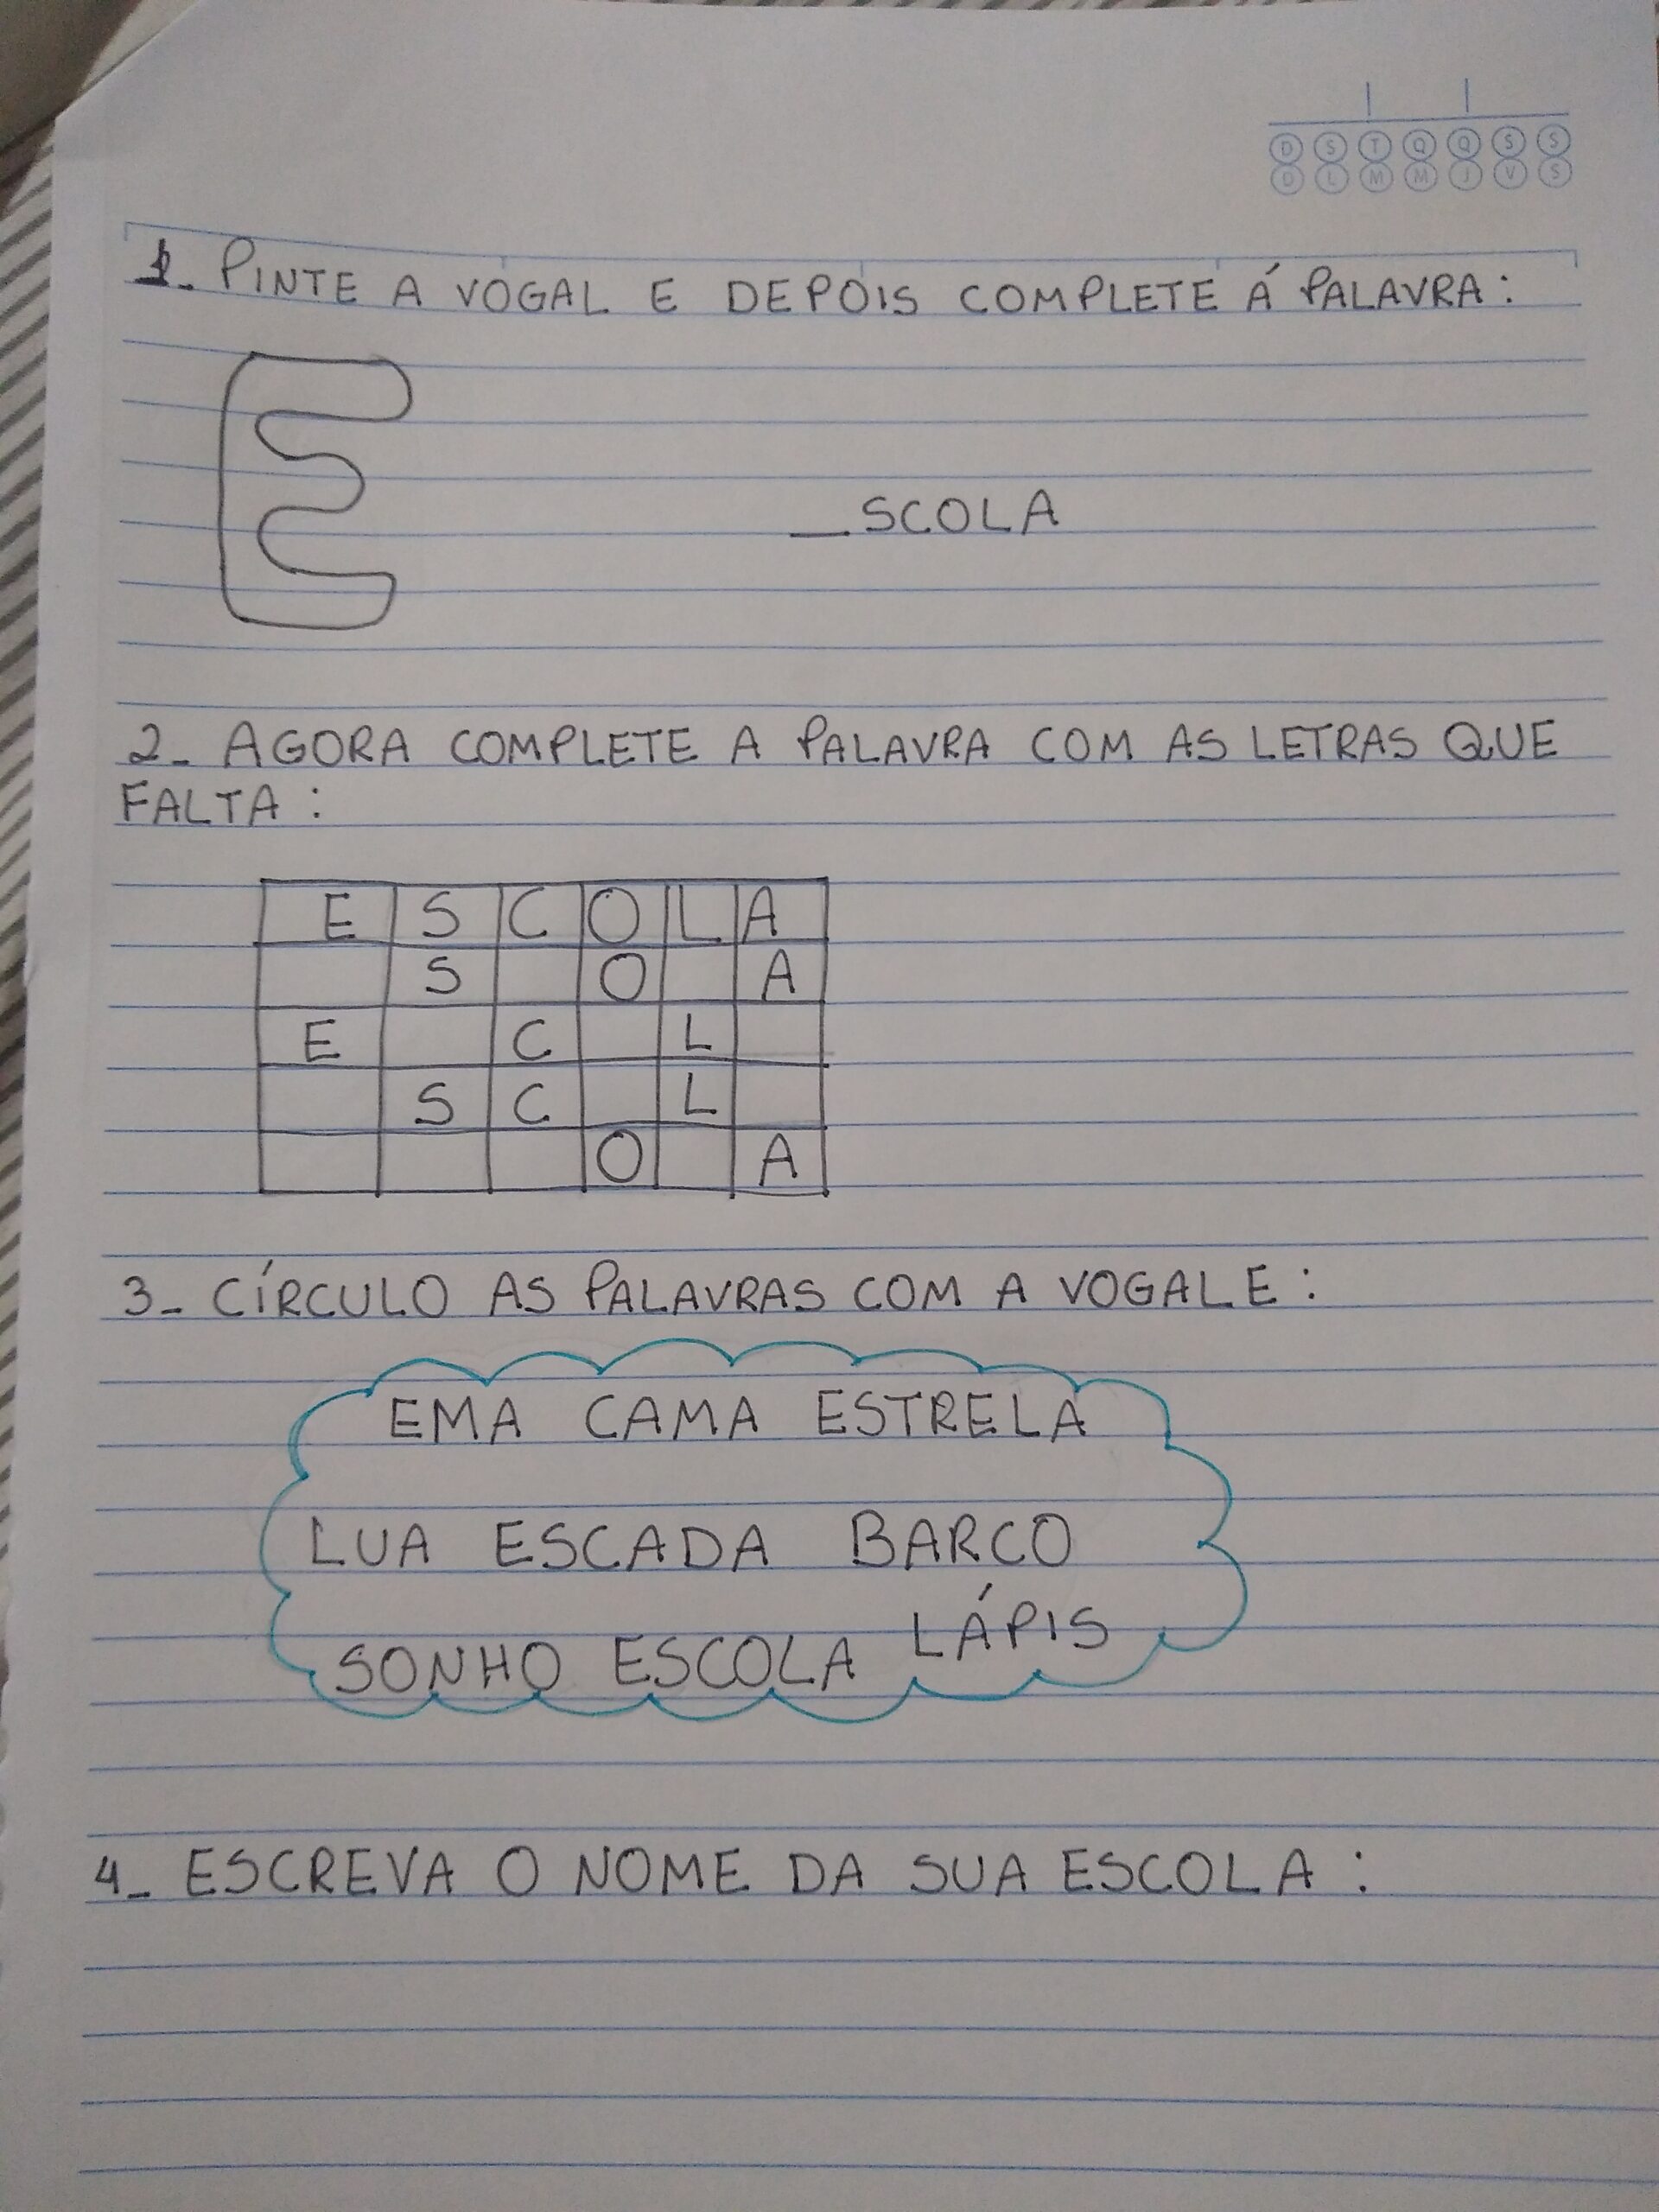 D S T Q Q S S
D L M M J V S
1- PINTE A VOGAL E DEPOIS COMPLETE Á PALAVRA:
E
_SCOLA
2- AGORA COMPLETE A PALAVRA COM AS LETRAS QUE
FALTA:
E S C O L A
S O A
E C L
S C L
O A
3- CÍRCULO AS PALAVRAS COM A VOGAL E:
EMA CAMA ESTRELA
LUA ESCADA BARCO
SONHO ESCOLA LÁPIS
4- ESCREVA O NOME DA SUA ESCOLA: